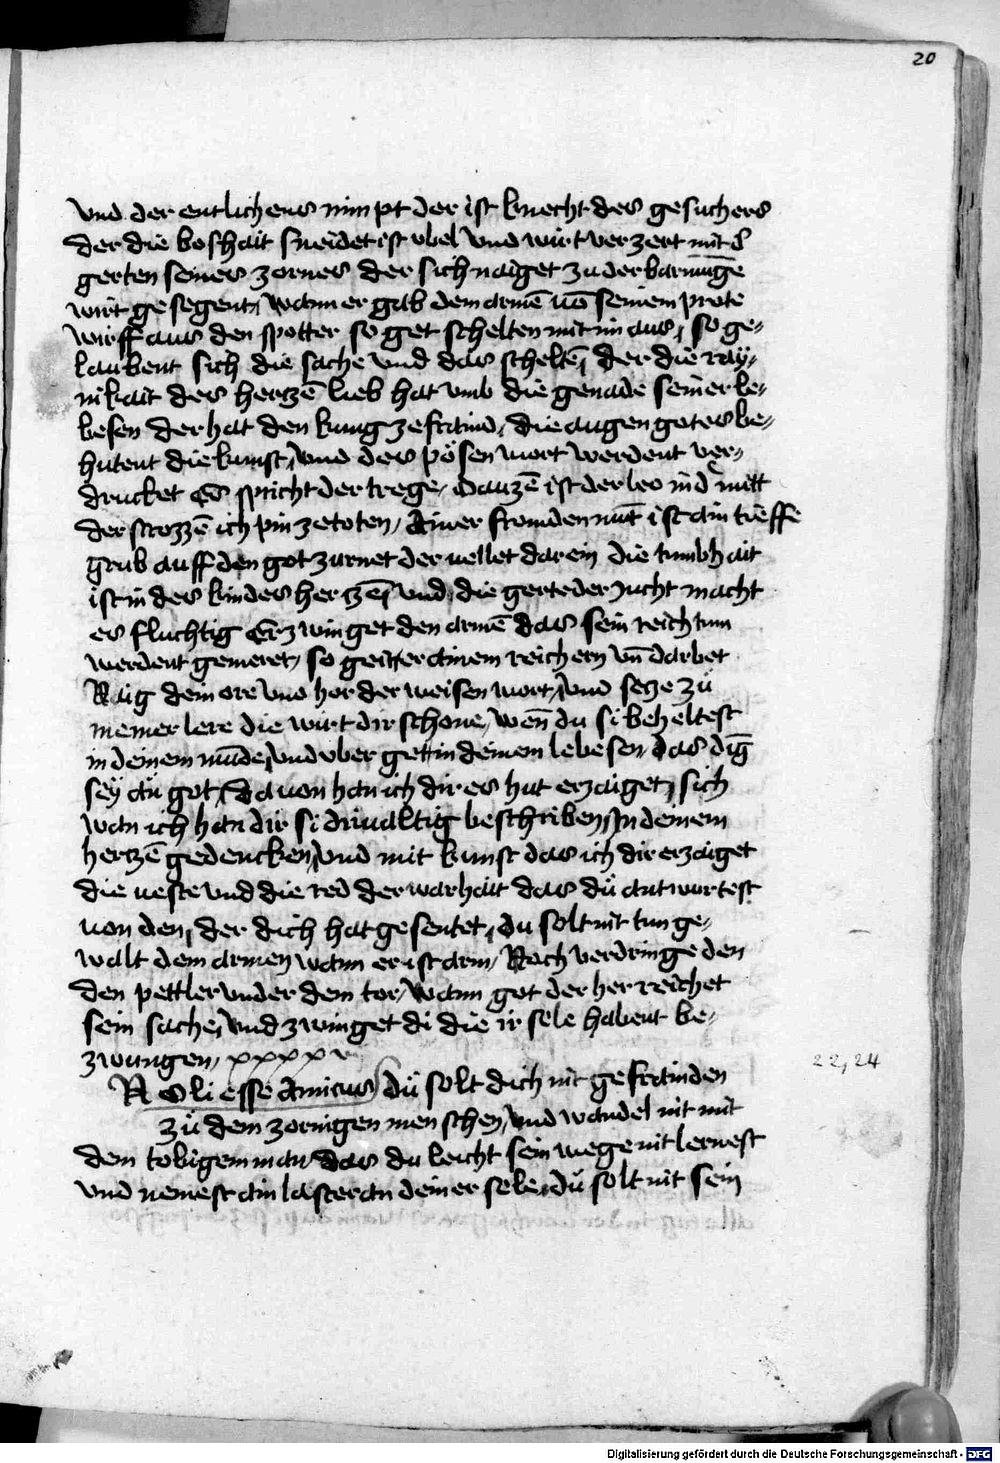 20
vnd der entlichens nimpt der ist knecht des gesuchers
der die boshait sneidet ist vbel vnd wirt verzert mit d
gerten seines zornes der sich naiget zu der barmūge
wirt gesegent, wann er gab dem armē uō seinem prote
wirff aus den spotter so get schelten mit im aus, so ge-
laubent sich die sache vnd das scheltē, der die ray-
nikait des hertzē lieb hat vmb die genade seiner le-
besen der hat den kunig ze fraund, die augen gotes be-
hutent die kunst, vnd des pösen wort werdent ver-
drucket Es spricht der trege, dauzē ist der leo in d mitt
der strozzē ich pin zetoten, Ainer fromden mūt ist ain tieffe
grub auff den got zurnet der uellet darein die tumbhait
ist in des kindes hertzē, vnd die gerte der zucht macht
es fluchtig Er zwinget den armē das sein reichtum
werdent gemeret, so geit er ainem reichern vn̄ darbet
Naig dein ore vnd hor der weisen wort, vnd setze zu
meiner lere die wirt dir schone, wen̄ du si beheltest
in deinem mūde, vnd vber get in deinem lebesen das dīg
sey an got, da uon han ich dir es hut erzaiget, sich
wan ich han dir si driualtig beschriben, In deinem
hertzē gedencken, vnd mit kunst das ich dir erzaiget
die ueste vnd die red der warhait das du antwurtest
uon den, der dich hat gesentet, du solt nit tun ge-
walt dem armen wann er ist arm, Noch verdringe den
den pettler vnder dem tor, wann got der her reichet
sein sache, vnd zwinget di die ir sele habent be-
zwungen, xxxxv
22,24
Noli esse Amicus, du solt dich nit gefrainden
zu dem zornigen menschen, vnd wandel nit mit
dem tobigem man das du leicht sein wege nit lernest
vnd nemest ain laster an deiner sele, du solt nit sein
Digitalisierung gefördert durch die Deutsche Forschungsgemeinschaft - DFG